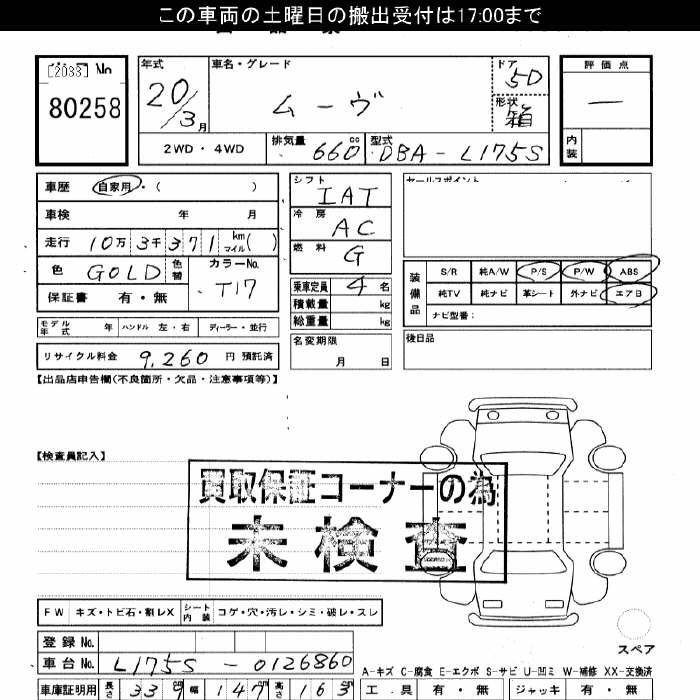 この車両の土曜日の搬出受付は17:00まで
[2033] No
80258
年式
20/3月
車名・グレード
ムーヴ
ドア
5D
形状
箱
評価点
—
内装
2WD・4WD
排気量
660cc
型式
DBA-L175S
車歴 自家用・( )
車検 年 月
走行 10万3千371 km マイル( )
色 GOLD 色替
カラーNo.
T17
保証書 有・無
シフト
IAT
冷房
AC
燃料
G
乗車定員 4 名
積載量 kg
総重量 kg
セールスポイント
装備品
S/R 純A/W P/S P/W ABS
純TV 純ナビ 革シート 外ナビ エアB
ナビ型番:
モデル年式 年 ハンドル 左・右 ディーラー・並行
リサイクル料金 9,260 円 預託済
名変期限
月 日
後日品
【出品店申告欄(不良箇所・欠品・注意事項等)】
【検査員記入】
買取保証コーナーの為
未検査
FW キズ・トビ石・割レX シート内装 コゲ・穴・汚レ・シミ・破レ・スレ
スペア
登録No.
車台No. L175S-0126860
A-キズ C-腐食 E-エクボ S-サビ U-凹ミ W-補修 XX-交換済
車庫証明用 長さ 339 幅 147 高さ 163
工具 有・無 ジャッキ 有・無